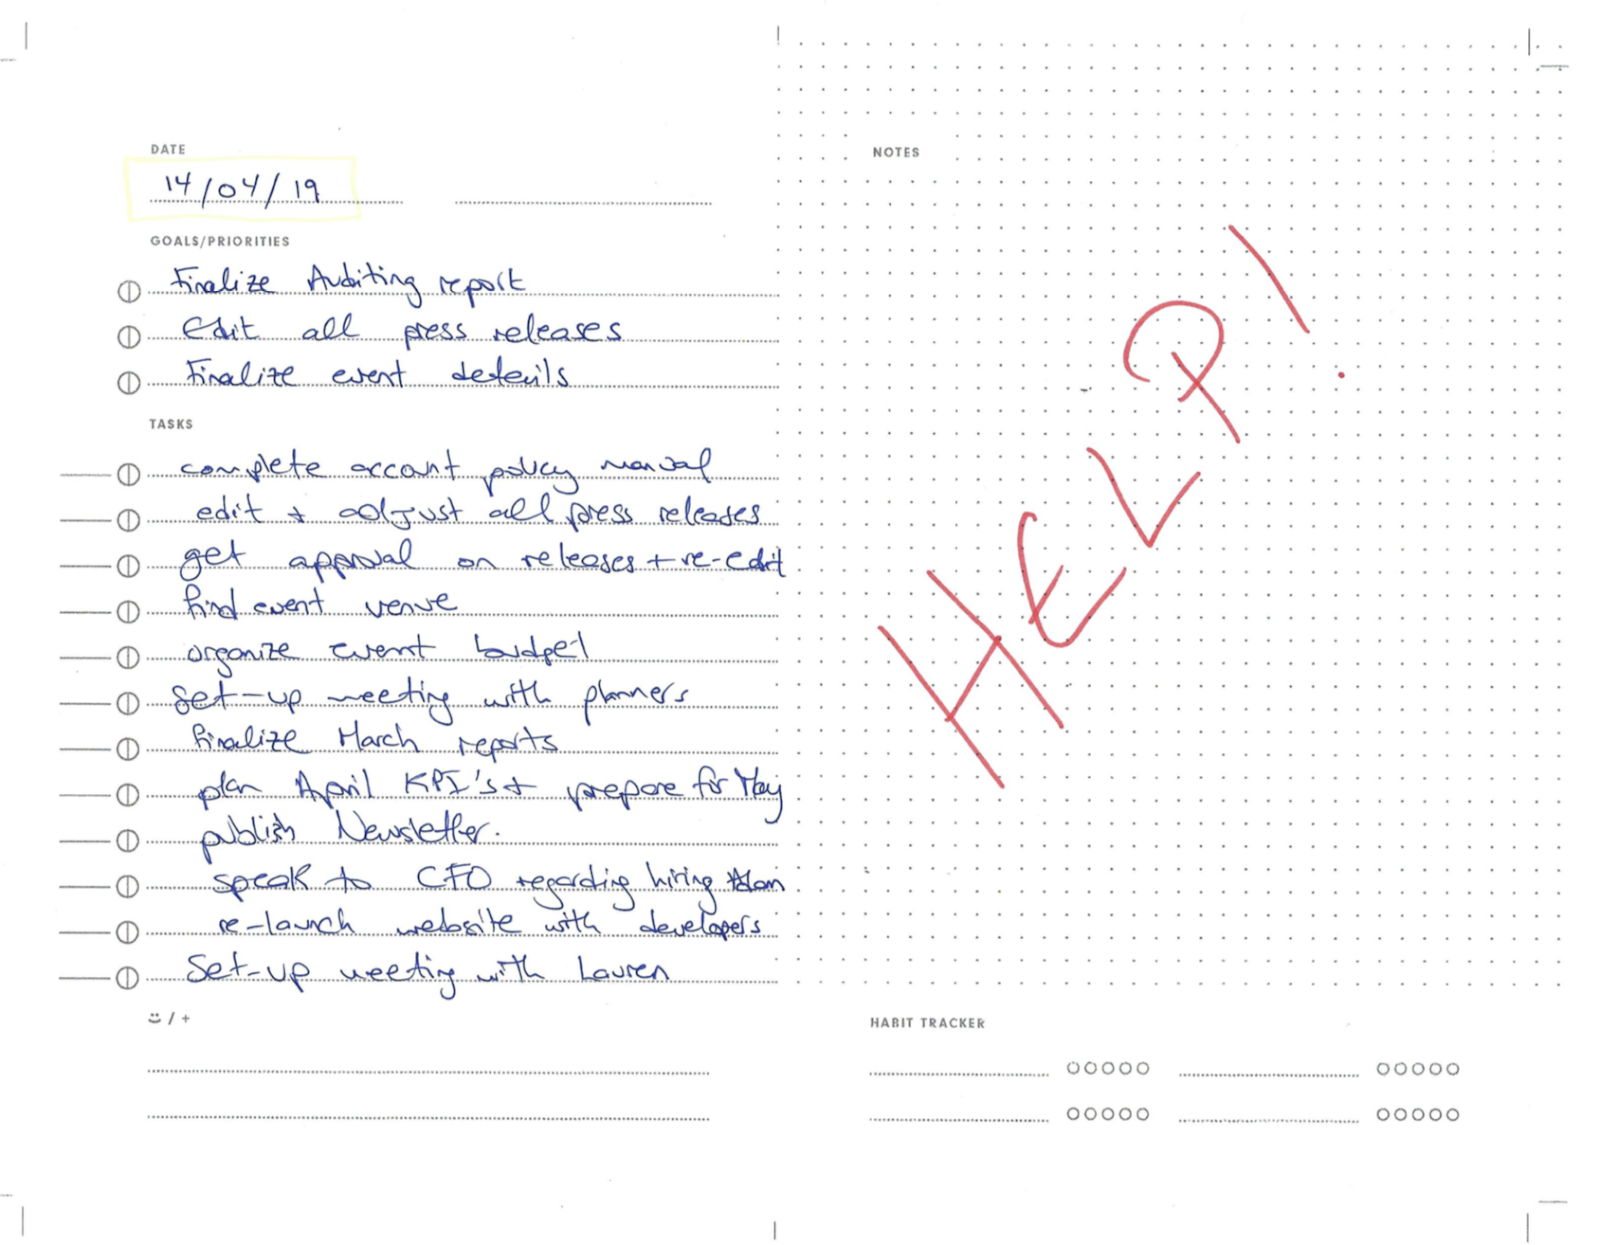 DATE
14/04/19
GOALS/PRIORITIES
Finalize Auditing report
Edit all press releases
Finalize event details
TASKS
complete account policy manual
edit + adjust all press releases
get approval on releases + re-edit
find event venue
organize event budget
Set-up meeting with planners
finalize March reports
plan April KPI's + prepare for May
publish Newsletter.
speak to CFO regarding hiring
re-launch website with developers
Set-up meeting with Lauren
/ +
NOTES
HELP!
HABIT TRACKER